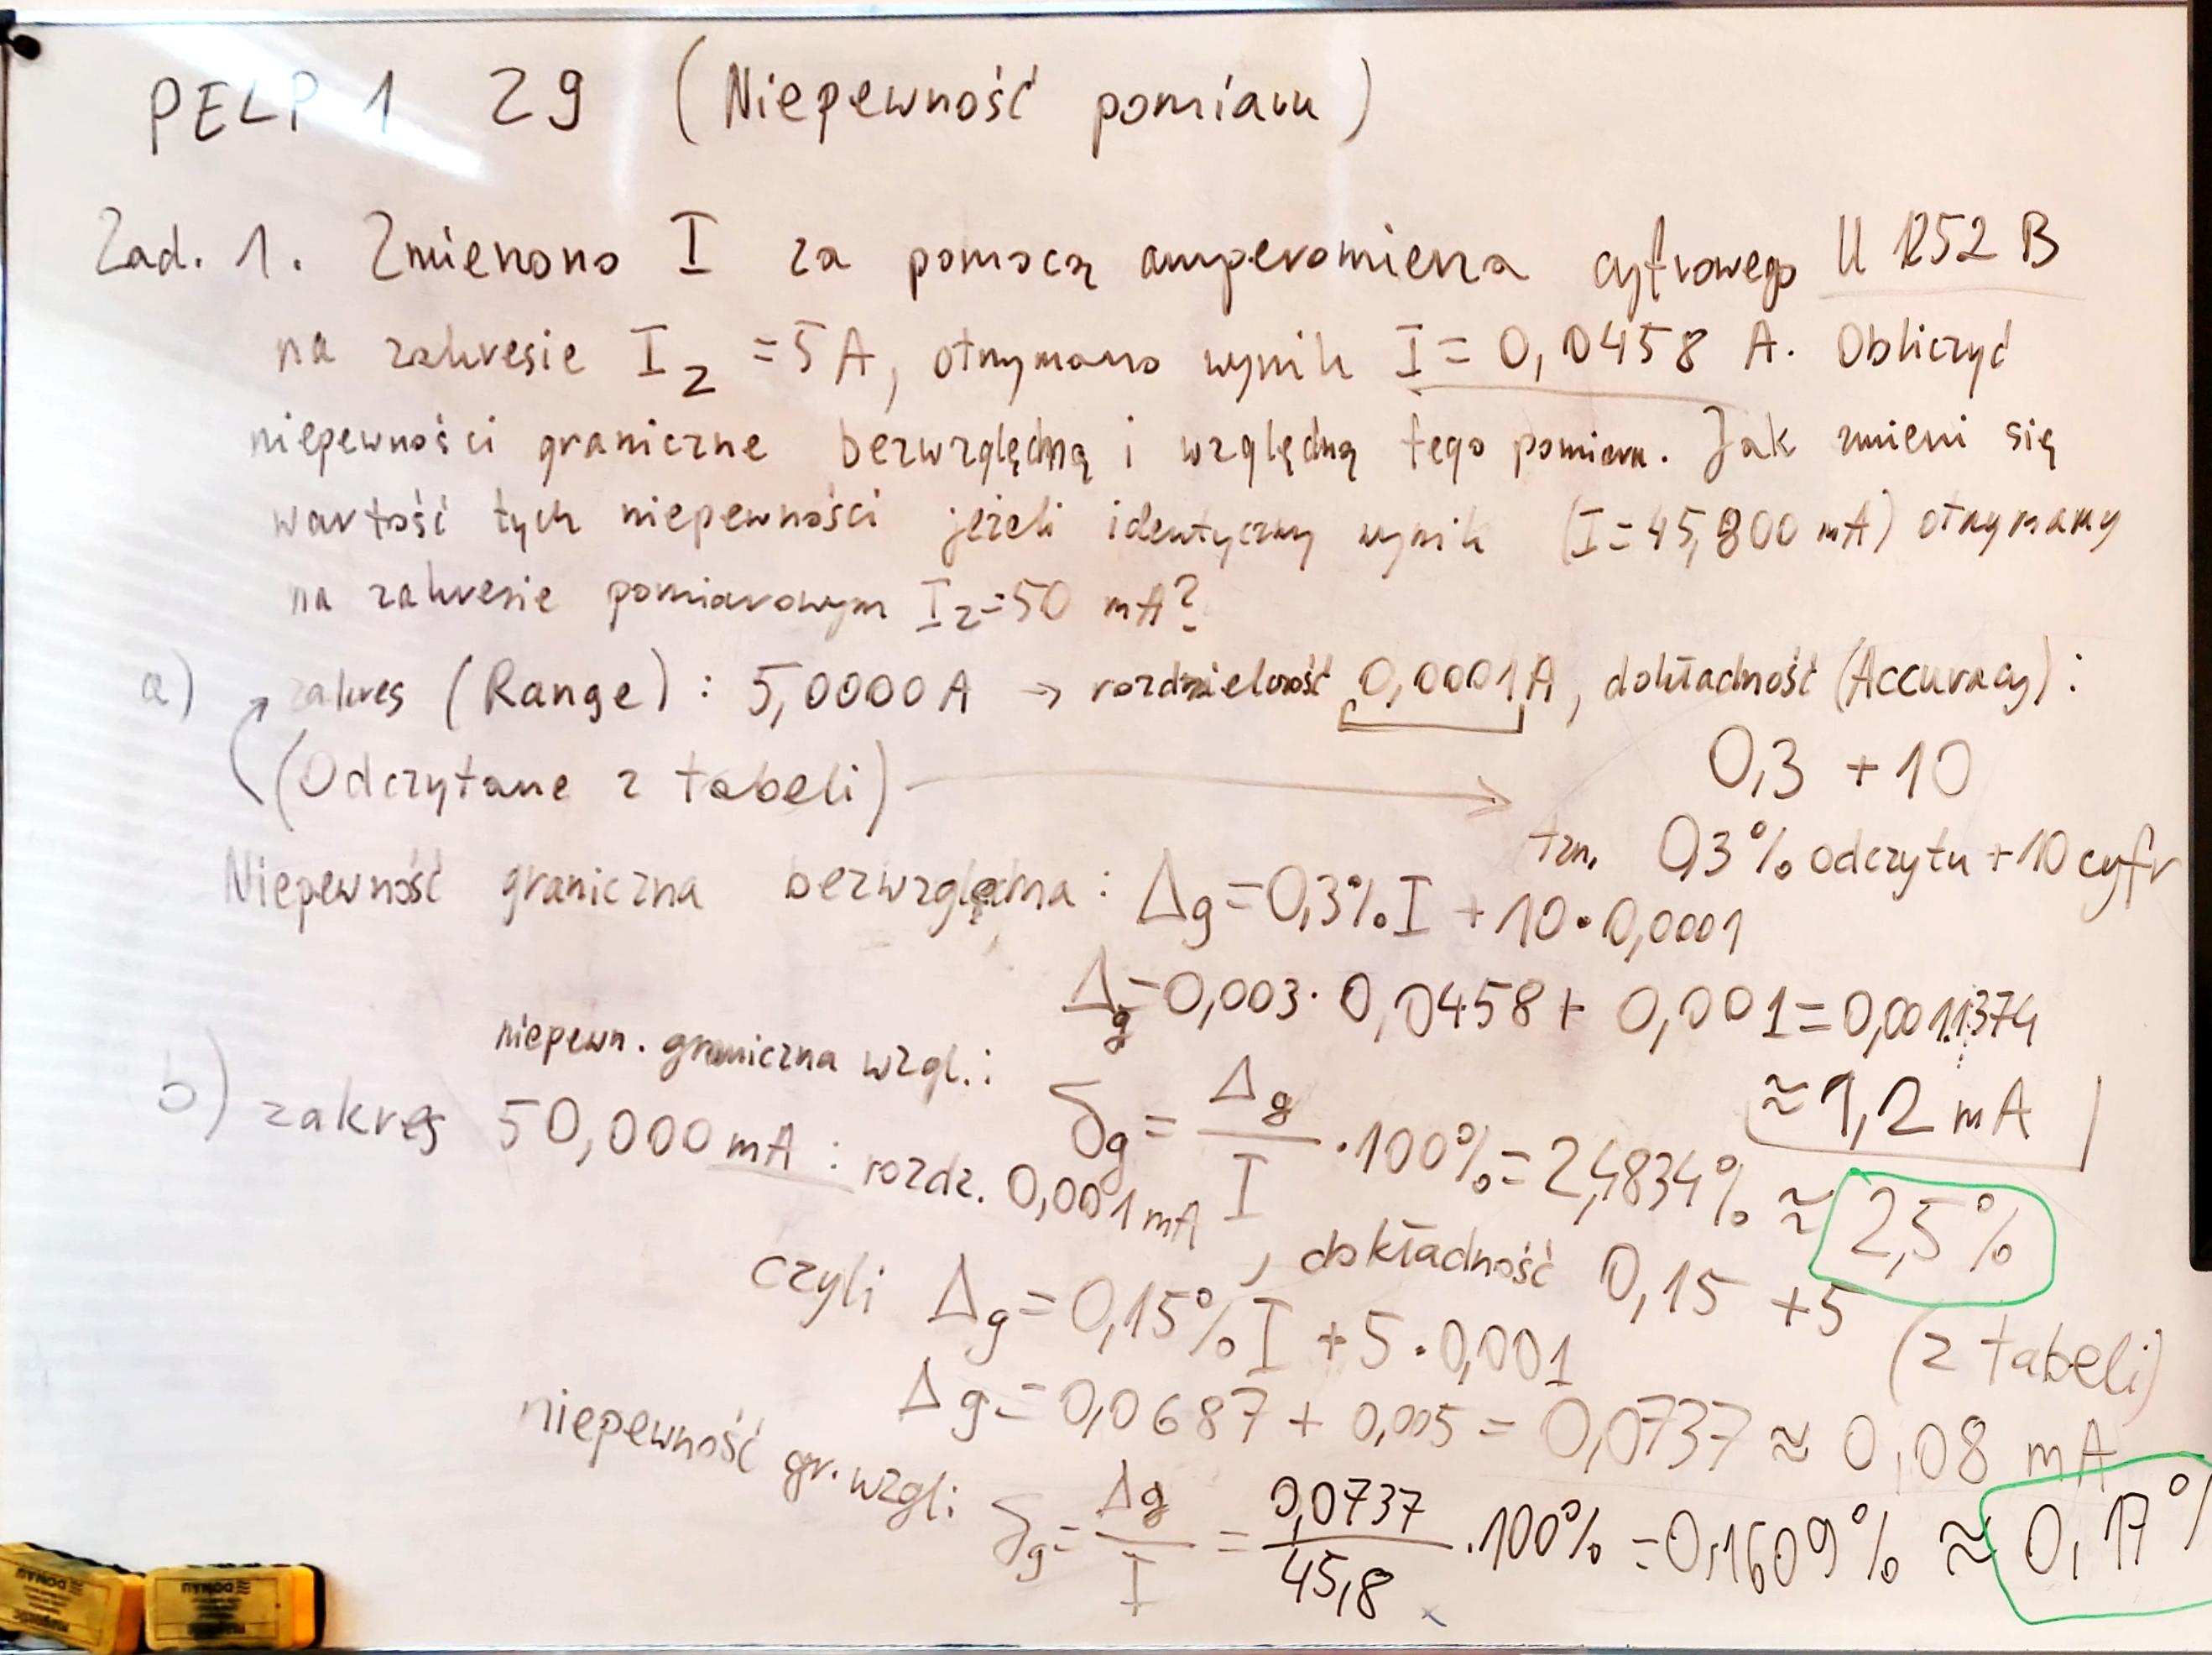 PELP 1 Z9 (Niepewność pomiaru)
Zad. 1. Zmierzono I za pomocą amperomierza cyfrowego U 1252 B
na zakresie Iz = 5 A, otrzymano wynik I = 0,0458 A. Obliczyć
niepewności graniczne bezwzględną i względną tego pomiaru. Jak zmieni się
wartość tych niepewności jeżeli identyczny wynik (I = 45,800 mA) otrzymamy
na zakresie pomiarowym Iz = 50 mA?
a) zakres (Range) : 5,0000 A → rozdzielczość 0,0001 A, dokładność (Accuracy) :
0,3 + 10
(Odczytane z tabeli) →
tzn. 0,3% odczytu + 10 cyfr
Niepewność graniczna bezwzględna : Δg = 0,3% I + 10 · 0,0001
Δg = 0,003 · 0,0458 + 0,001 = 0,0011374
≈ 1,2 mA
niepewn. graniczna wzgl. : δg = Δg / I · 100% = 2,4834% ≈ 2,5%
b) zakres 50,000 mA : rozdz. 0,001 mA, dokładność 0,15 + 5
(z tabeli)
czyli Δg = 0,15% I + 5 · 0,001
Δg = 0,0687 + 0,005 = 0,0737 ≈ 0,08 mA
niepewność gr. wzgl : δg = Δg / I = 0,0737 / 45,8 · 100% = 0,1609% ≈ 0,17%
DONAU
DONAU